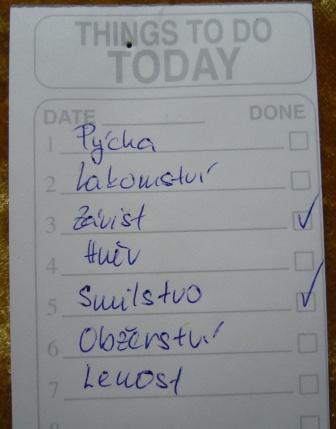 THINGS TO DO
TODAY
DATE DONE
1 Pýcha
2 Lakomství
3 Závist ✓
4 Hněv
5 Smilstvo ✓
6 Obžerství
7 Lenost